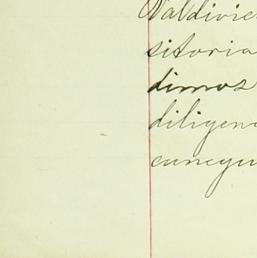 Valdivie
sitoria
dimos
diligenc
cunegu